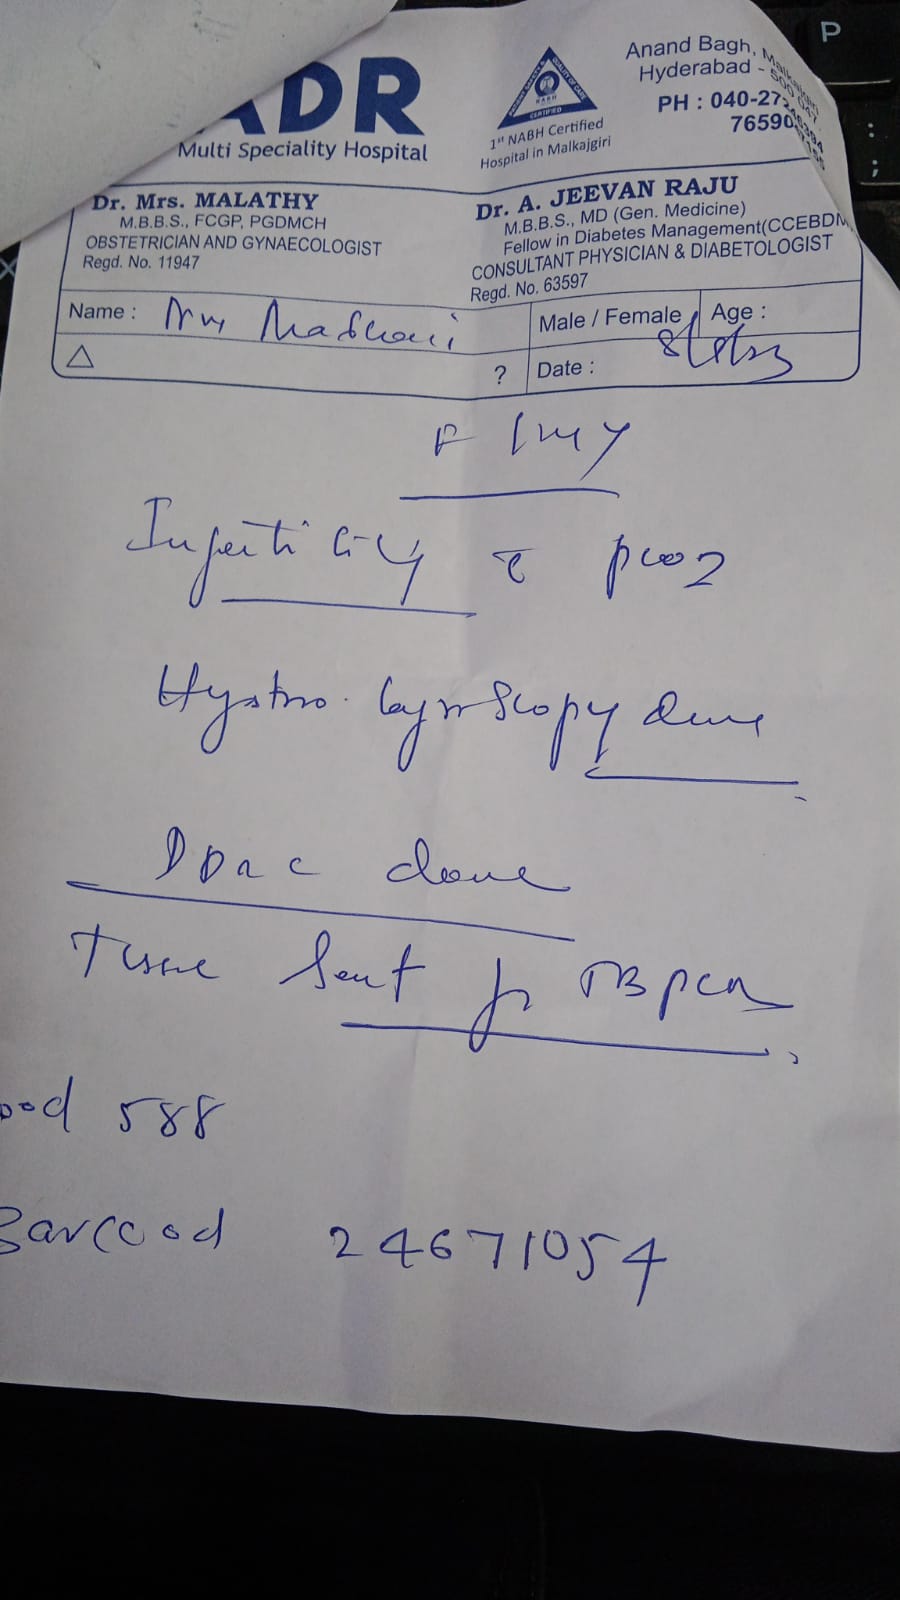 ADR
Multi Speciality Hospital
NABH
CERTIFIED
1st NABH Certified
Hospital in Malkajgiri
Anand Bagh, Malkajgiri
Hyderabad - 500 047
PH : 040-27
76590
Dr. Mrs. MALATHY
M.B.B.S., FCGP, PGDMCH
OBSTETRICIAN AND GYNAECOLOGIST
Regd. No. 11947
Dr. A. JEEVAN RAJU
M.B.B.S., MD (Gen. Medicine)
Fellow in Diabetes Management(CCEBDM
CONSULTANT PHYSICIAN & DIABETOLOGIST
Regd. No. 63597
Name :
Male / Female
Age :
△
?
Date :
Infertility c̄
Hystro. done
done
Tissue Sent for TB pcr
ood 588
Barccod 24671054
P